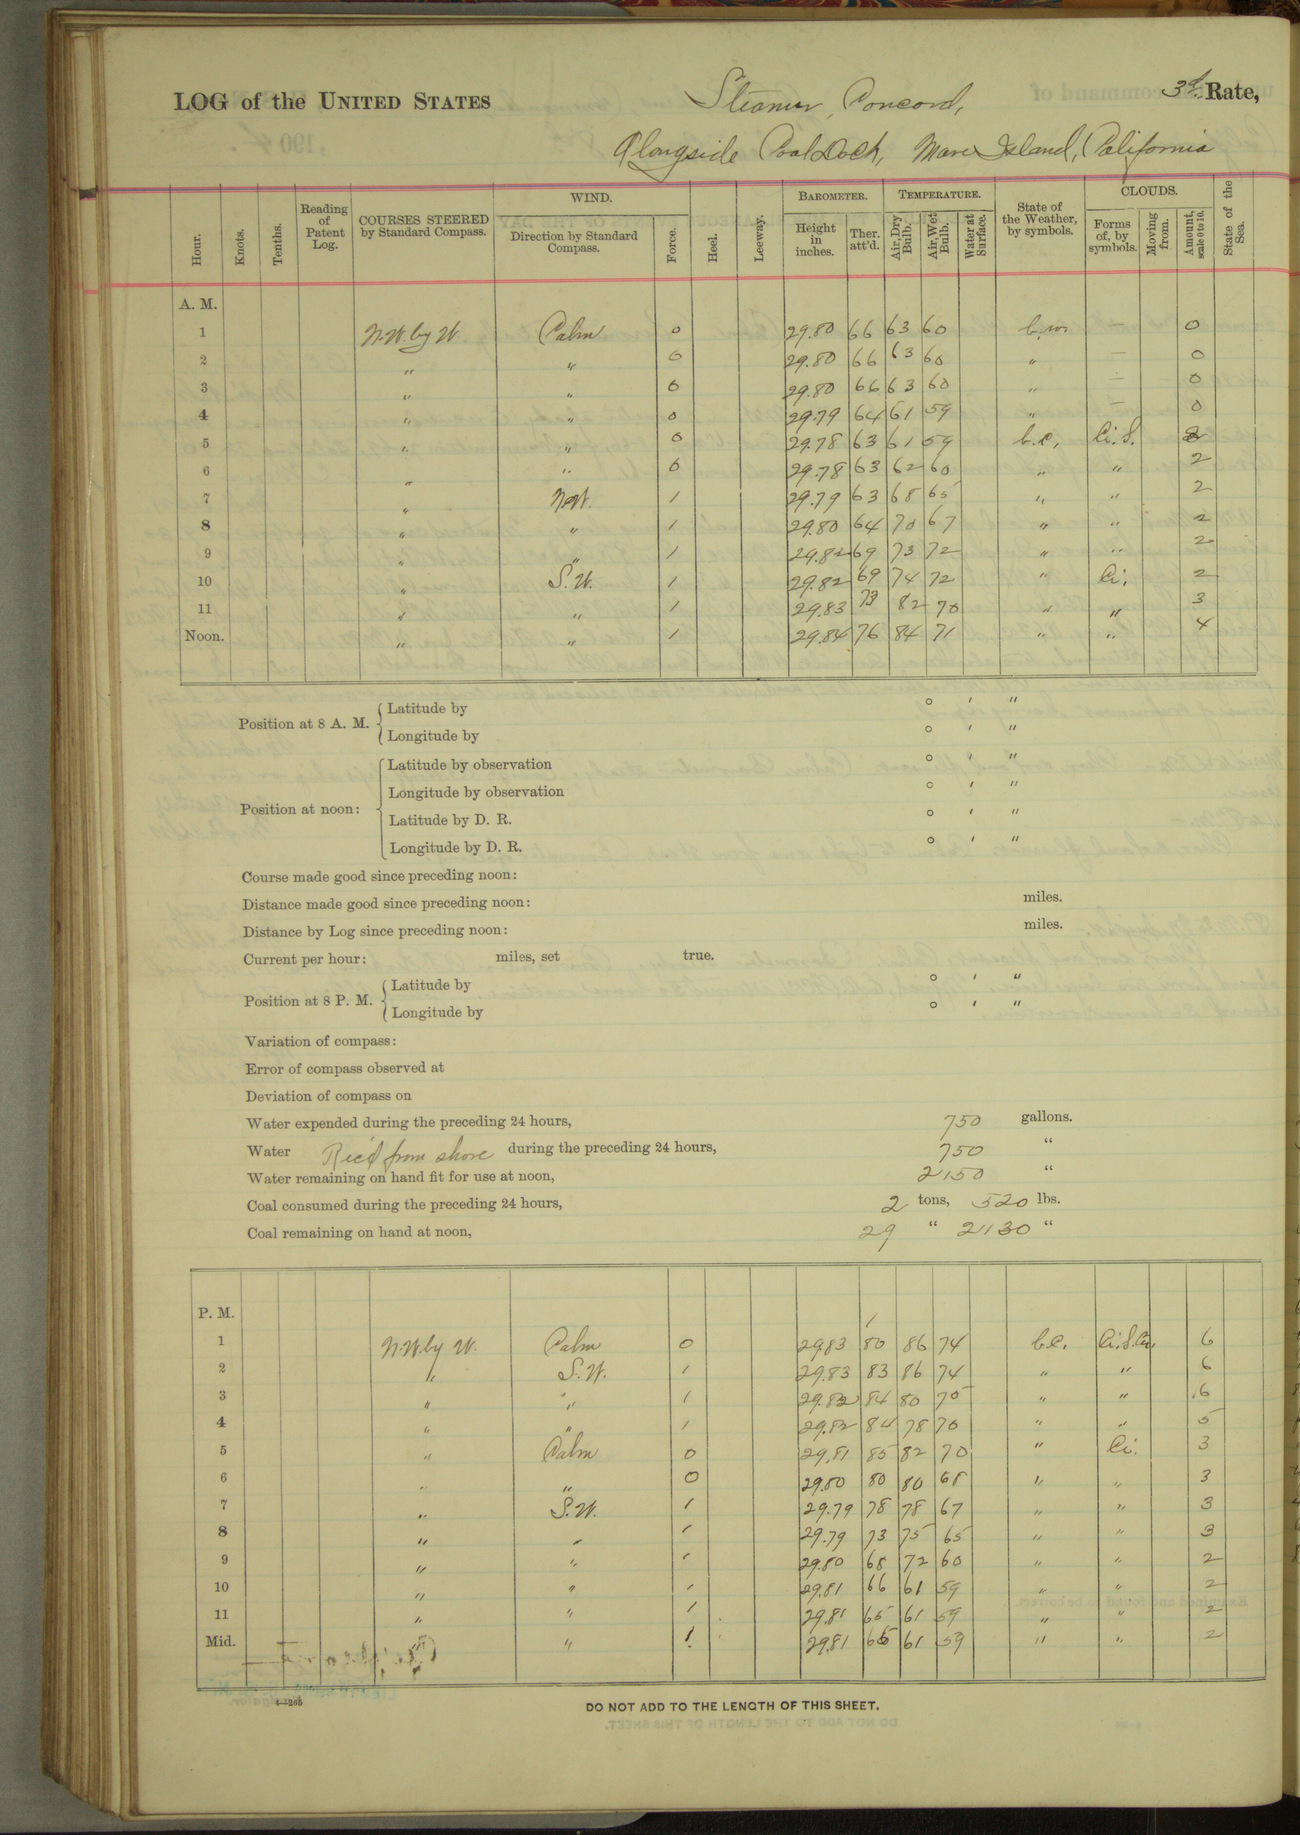 LOG of the UNITED STATES Steamer, Concord, 3d Rate,
Alongside Coal Dock, Mare Island, California
Hour. Knots. Tenths. Reading of Patent Log. COURSES STEERED by Standard Compass. WIND. Direction by Standard Compass. Force. Heel. Leeway. BAROMETER. Height in inches. Ther. att'd. TEMPERATURE. Air, Dry Bulb. Air, Wet Bulb. Water at Surface. State of the Weather, by symbols. CLOUDS. Forms of, by symbols. Moving from. Amount, scale 0 to 10. State of the Sea.
A. M.
1 N.W. by W. Calm 0 29.80 66 63 60 b.m. — 0
2 " " 0 29.80 66 63 60 " — 0
3 " " 0 29.80 66 63 60 " — 0
4 " " 0 29.79 64 61 59 " — 0
5 " " 0 29.78 63 61 59 b.c. Ci.S. 2
6 " " 0 29.78 63 62 60 " " 2
7 " N.W. 1 29.79 63 68 65 " " 2
8 " " 1 29.80 64 70 67 " " 2
9 " " 1 29.82 69 73 72 " " 2
10 " S.W. 1 29.82 69 74 72 " Ci. 2
11 " " 1 29.83 73 82 70 " " 3
Noon. " " 1 29.84 76 84 71 " " 4
Position at 8 A. M. Latitude by ° ' "
Longitude by ° ' "
Position at noon: Latitude by observation ° ' "
Longitude by observation ° ' "
Latitude by D. R. ° ' "
Longitude by D. R. ° ' "
Course made good since preceding noon:
Distance made good since preceding noon: miles.
Distance by Log since preceding noon: miles.
Current per hour: miles, set true.
Position at 8 P. M. Latitude by ° ' "
Longitude by ° ' "
Variation of compass:
Error of compass observed at
Deviation of compass on
Water expended during the preceding 24 hours, 750 gallons.
Water Rec'd from shore during the preceding 24 hours, 750 "
Water remaining on hand fit for use at noon, 2150 "
Coal consumed during the preceding 24 hours, 2 tons, 520 lbs.
Coal remaining on hand at noon, 29 " 2130 "
P. M.
1 N.W. by W. Calm 0 29.83 80 86 74 b.c. Ci.S.Cu. 6
2 " S.W. 1 29.83 83 86 74 " " 6
3 " " 1 29.82 84 80 70 " " 6
4 " " 1 29.82 84 78 70 " " 5
5 " Calm 0 29.81 85 82 70 " Ci. 3
6 " " 0 29.80 80 80 68 " " 3
7 " S.W. 1 29.79 78 78 67 " " 3
8 " " 1 29.79 73 75 65 " " 3
9 " " 1 29.80 68 72 60 " " 2
10 " " 1 29.81 66 61 59 " " 2
11 " " 1 29.81 65 61 59 " " 2
Mid. " " 1 29.81 65 61 59 " " 2
4—265
DO NOT ADD TO THE LENGTH OF THIS SHEET.